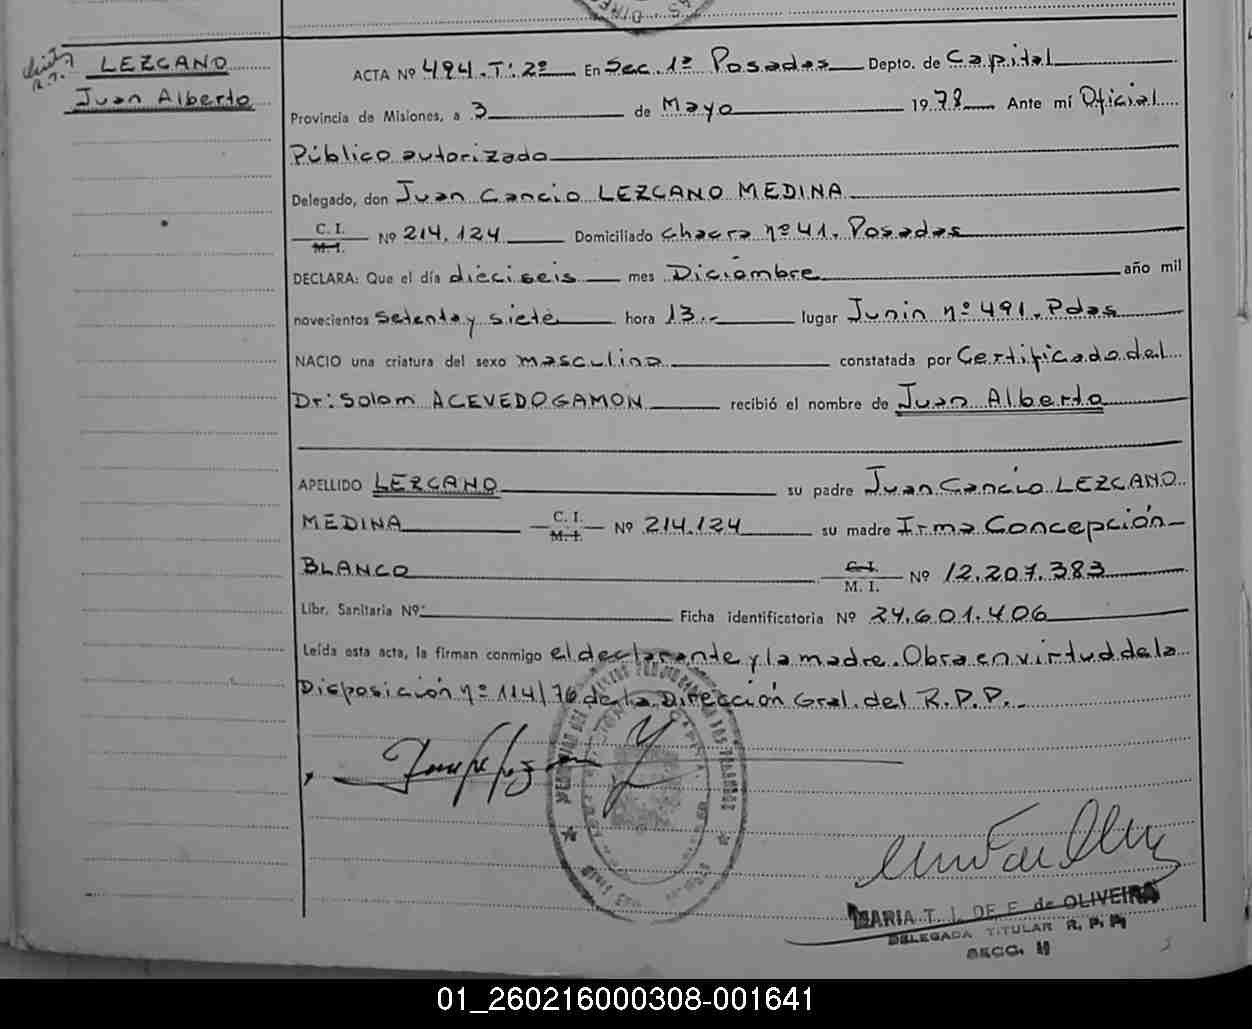 LEZCANO
Juan Alberto
ACTA Nº 494.T:2º En Sec.1ª Posadas Depto. de Capital
Provincia de Misiones, a 3 de Mayo 1978 Ante mí Oficial
Público autorizado
Delegado, don Juan Cancio LEZCANO MEDINA
C. I. M. I. Nº 214.124 Domiciliado chacra nº 41. Posadas
DECLARA: Que el día dieciseis mes Diciembre año mil
novecientos setenta y siete hora 13.- lugar Junin nº 491. Pdas
NACIO una criatura del sexo masculino constatada por Certificado del
Dr: Solom ACEVEDO GAMON recibió el nombre de Juan Alberto
APELLIDO LEZCANO su padre Juan Cancio LEZCANO
MEDINA C. I. M. I. Nº 214.124 su madre Irma Concepción
BLANCO C. I. M. I. Nº 12.207.383
Libr. Sanitaria Nº Ficha identificatoria Nº 24.601.406
Leída esta acta, la firman conmigo el declarante y la madre. Obra en virtud de la
Disposición nº 114/76 de la Dirección Gral. del R.P.P.-
MARIA T. I. DE F. de OLIVEIRA
DELEGADA TITULAR R. P. P.
SECC.
01_260216000308-001641